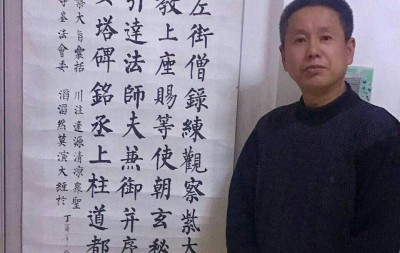 左街僧錄練觀察紫大
教上座賜等使朝玄秘
引達法師夫兼御并序
塔碑銘丞上柱道都
大旨囊括
川注逢源清凉衆聖
寺崟法會委
滔滔然莫演大經於
丁酉